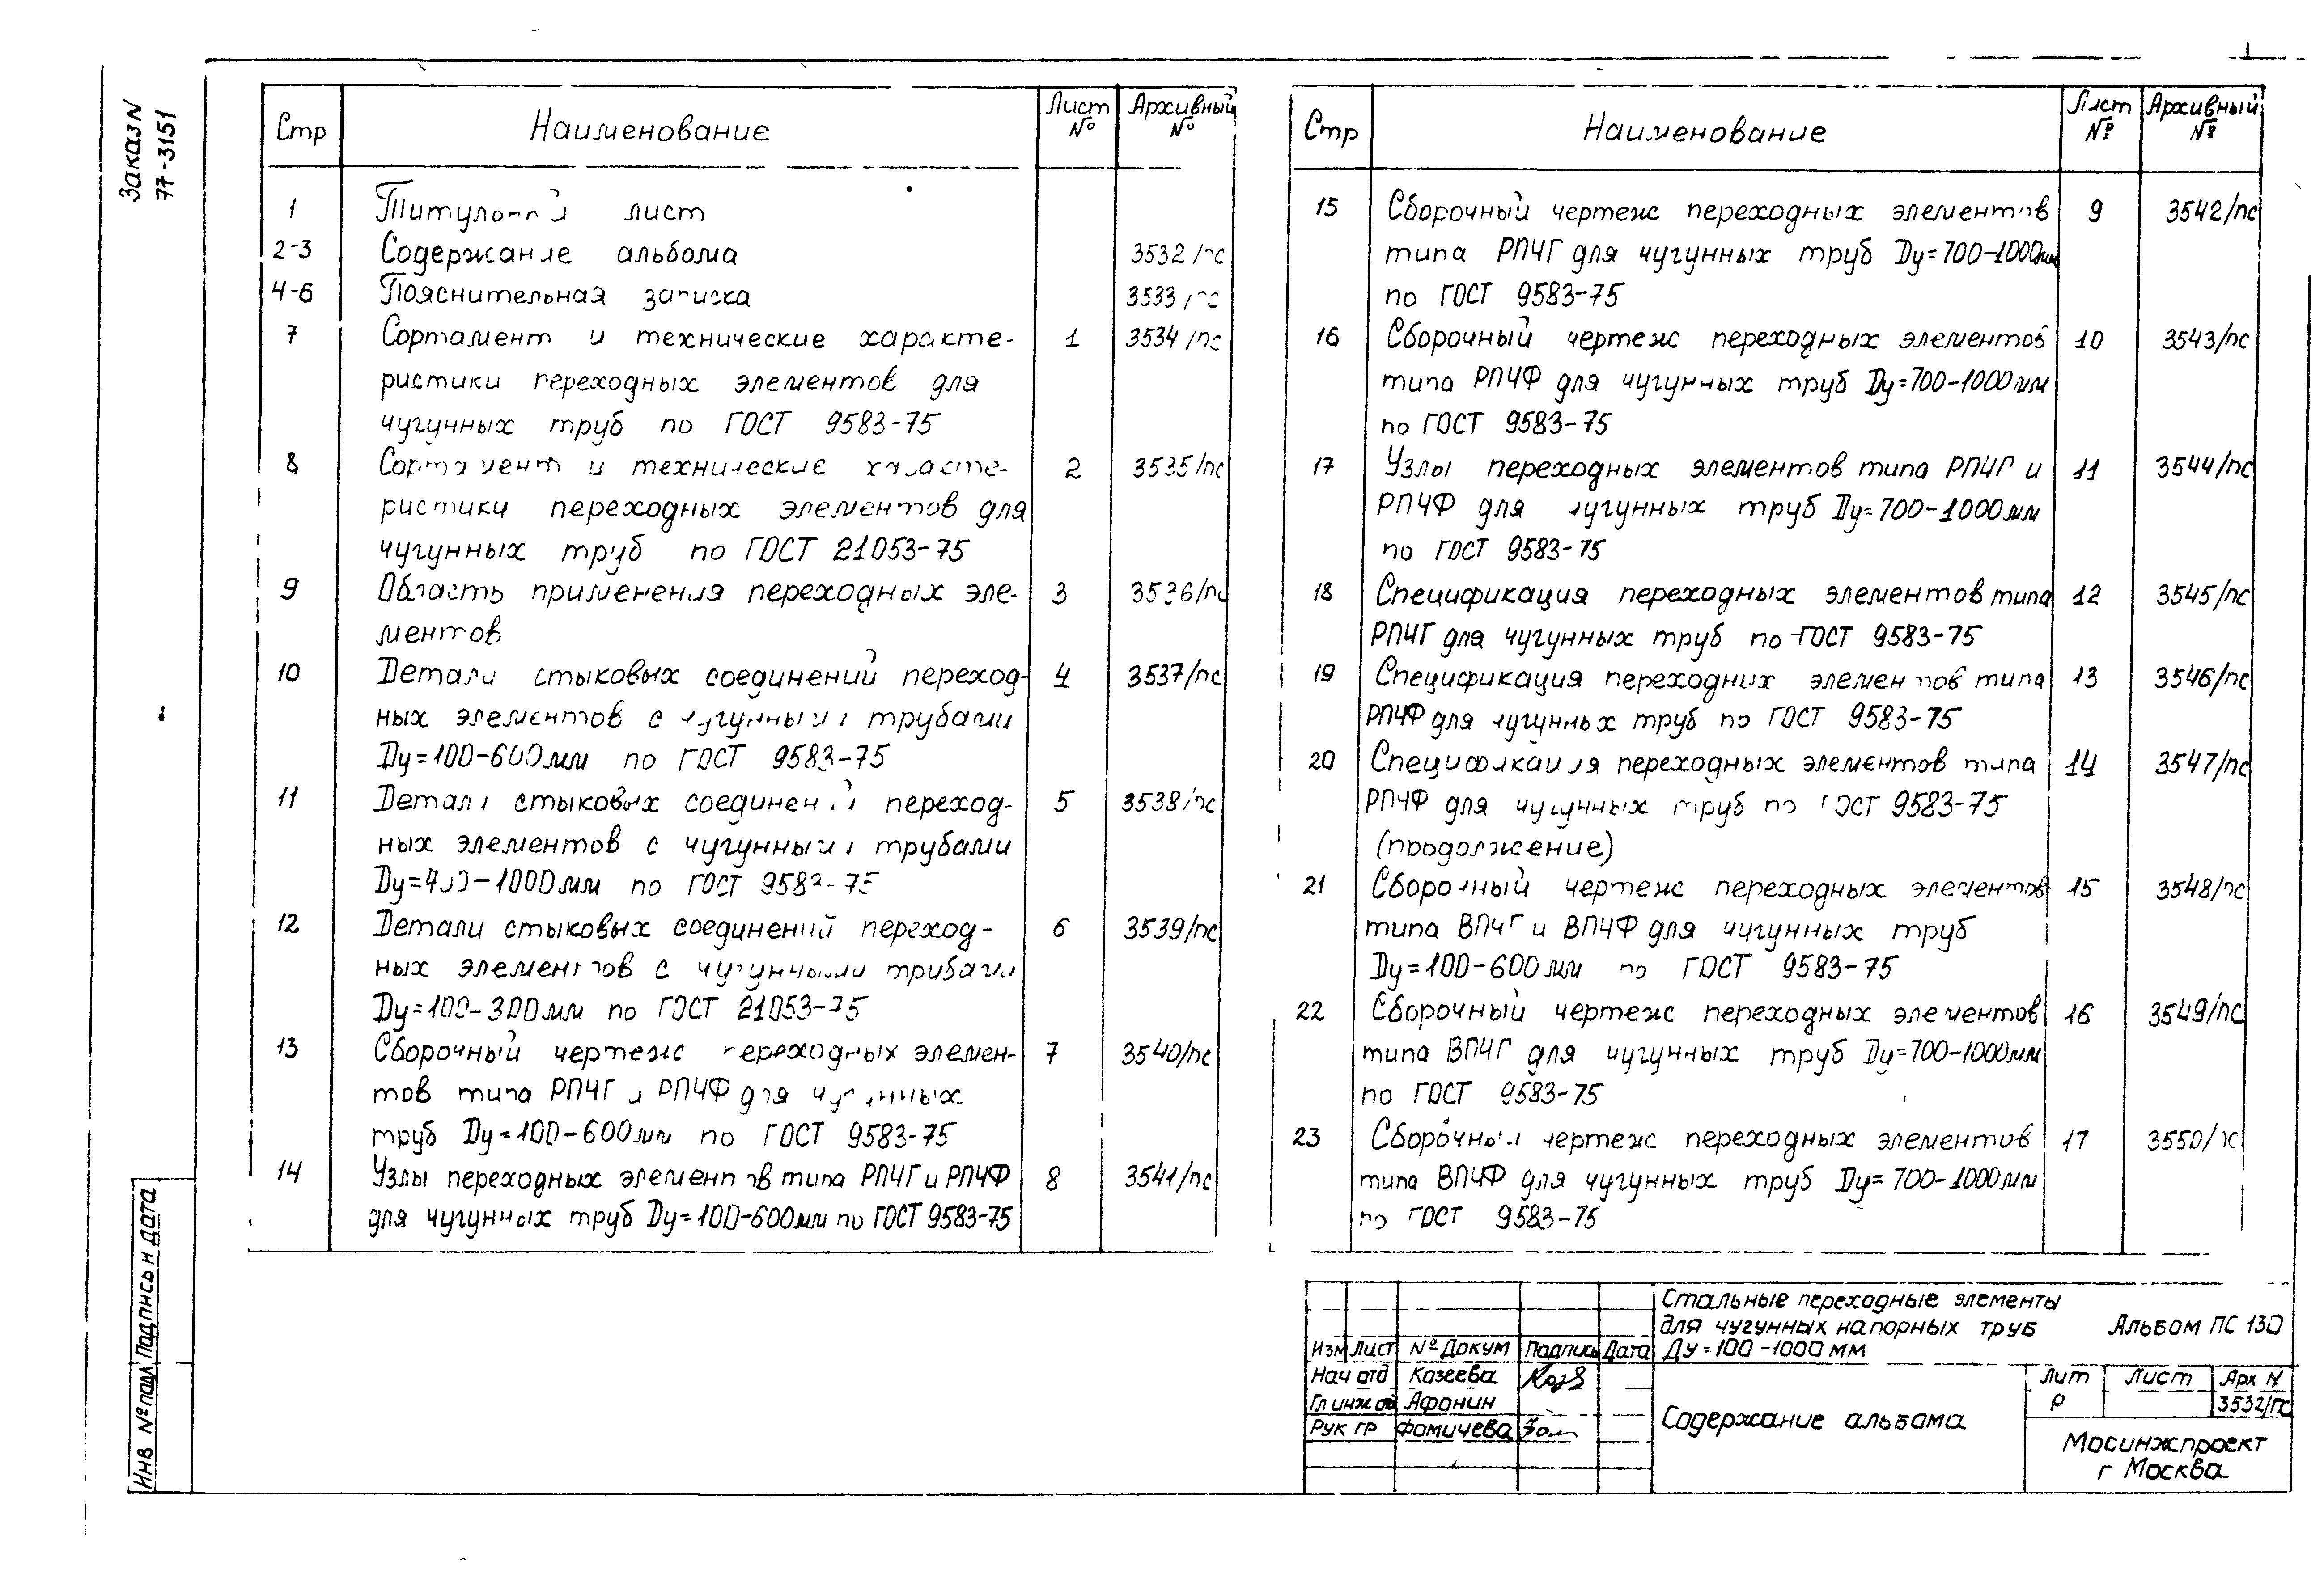 Заказ N
77-3151
Стр Наименование Лист № Архивный №
1 Титульный лист
2-3 Содержание альбома 3532/пс
4-6 Пояснительная записка 3533/пс
7 Сортамент и технические характе- 1 3534/пс
ристики переходных элементов для
чугунных труб по ГОСТ 9583-75
8 Сортамент и технические характе- 2 3535/пс
ристики переходных элементов для
чугунных труб по ГОСТ 21053-75
9 Область применения переходных эле- 3 3536/пс
ментов
10 Детали стыковых соединений переход- 4 3537/пс
ных элементов с чугунными трубами
Dу=100-600мм по ГОСТ 9583-75
11 Детали стыковых соединений переход- 5 3538/пс
ных элементов с чугунными трубами
Dу=700-1000мм по ГОСТ 9583-75
12 Детали стыковых соединений переход- 6 3539/пс
ных элементов с чугунными трубами
Dу=100-300мм по ГОСТ 21053-75
13 Сборочный чертеж переходных элемен- 7 3540/пс
тов типа РПЧГ и РПЧФ для чугунных
труб Dу=100-600мм по ГОСТ 9583-75
14 Узлы переходных элементов типа РПЧГ и РПЧФ 8 3541/пс
для чугунных труб Dу=100-600мм по ГОСТ 9583-75
Стр Наименование Лист № Архивный №
15 Сборочный чертеж переходных элементов 9 3542/пс
типа РПЧГ для чугунных труб Dу=700-1000мм
по ГОСТ 9583-75
16 Сборочный чертеж переходных элементов 10 3543/пс
типа РПЧФ для чугунных труб Dу=700-1000мм
по ГОСТ 9583-75
17 Узлы переходных элементов типа РПЧГ и 11 3544/пс
РПЧФ для чугунных труб Dу=700-1000мм
по ГОСТ 9583-75
18 Спецификация переходных элементов типа 12 3545/пс
РПЧГ для чугунных труб по ГОСТ 9583-75
19 Спецификация переходних элементов типа 13 3546/пс
РПЧФ для чугунных труб по ГОСТ 9583-75
20 Спецификация переходных элементов типа 14 3547/пс
РПЧФ для чугунных труб по ГОСТ 9583-75
(продолжение)
21 Сборочный чертеж переходных элементов 15 3548/пс
типа ВПЧГ и ВПЧФ для чугунных труб
Dу=100-600мм по ГОСТ 9583-75
22 Сборочный чертеж переходных элементов 16 3549/пс
типа ВПЧГ для чугунных труб Dу=700-1000мм
по ГОСТ 9583-75
23 Сборочный чертеж переходных элементов 17 3550/пс
типа ВПЧФ для чугунных труб Dу=700-1000мм
по ГОСТ 9583-75
Инв № подл Подпись и дата
Стальные переходные элементы
для чугунных напорных труб Альбом ПС 130
Ду=100-1000 мм
Изм Лист № Докум Подпись Дата
Нач отд Козеева
Гл инж од Афонин
Рук гр Фомичева
Содержание альбома
Лит Лист Арх N
Р 3532/пс
Мосинжпроект
г Москва